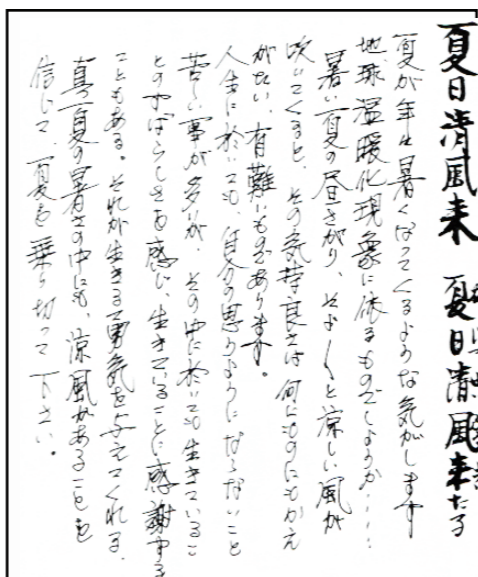 夏日清風来 夏日清風来たる
夏が年々暑くなってくるような気がします
地球温暖化現象に依るものでしょうか……
暑い夏の昼さがり、そよ〳〵と涼しい風が
吹いてくると、その気持良さは何ものにもかえ
がたい、有難いものであります。
人生に於いても、自分の思うようにならないこと
苦しい事が多いが、その中に於いても生きているこ
とのすばらしさを感じ、生きていることに感謝する
こともある。それが生きる勇気を与えてくれる。
真夏の暑さの中にも、涼風があることを
信じて、夏を乗り切って下さい。